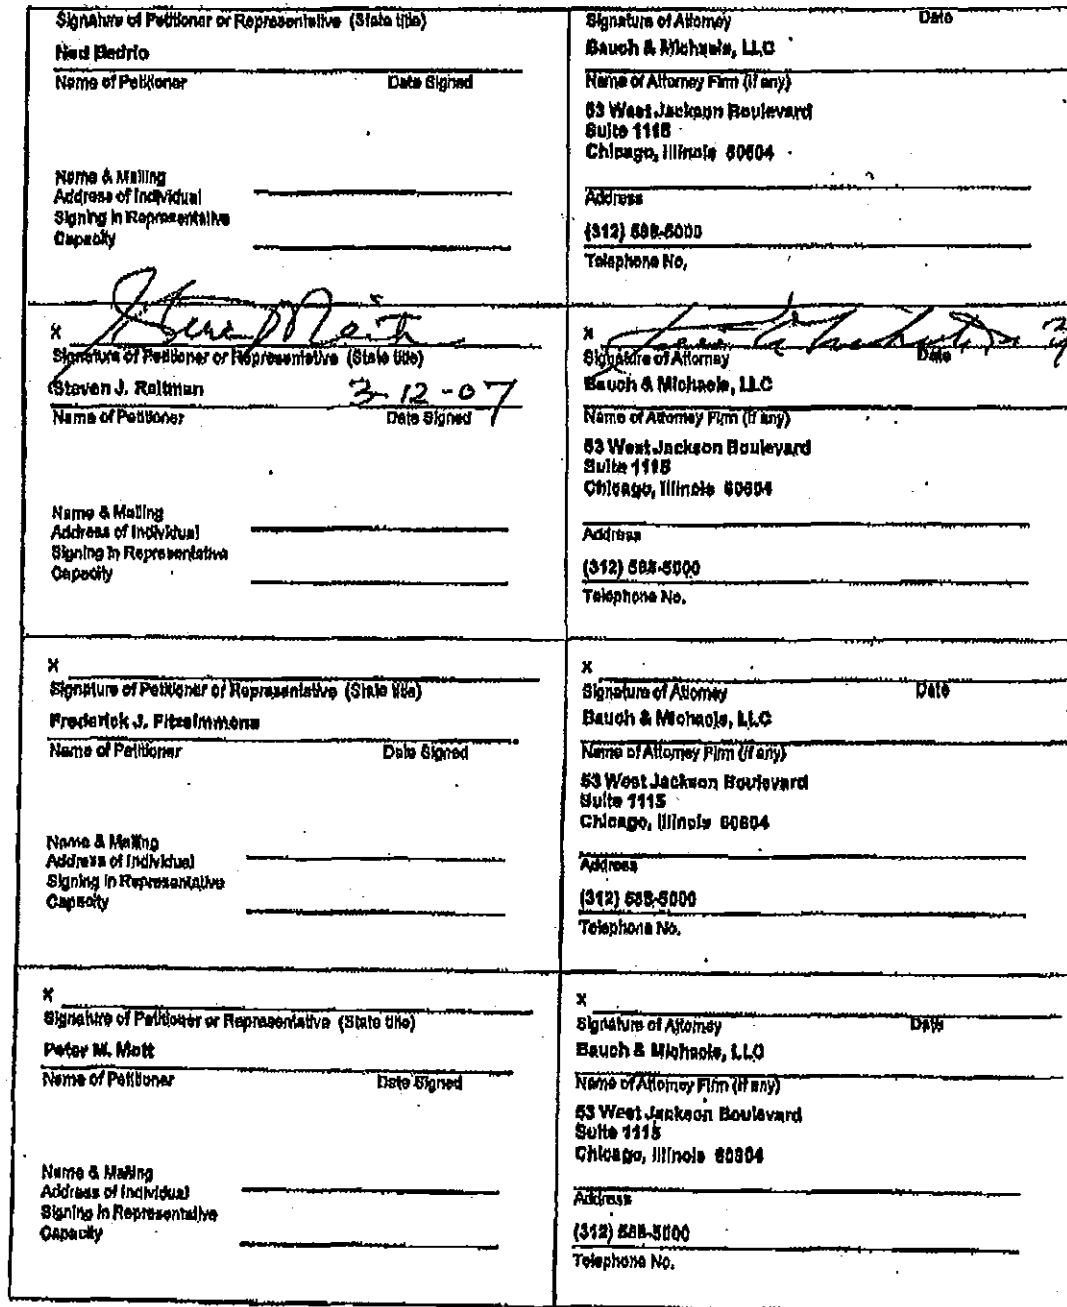 Signature of Petitioner or Representative (State title)
Ned
Name of Petitioner Date Signed
Name & Mailing
Address of Individual
Signing in Representative
Capacity
Signature of Attorney Date
Bauch & Michaels, LLC
Name of Attorney Firm (if any)
53 West Jackson Boulevard
Suite 1115
Chicago, Illinois 60604
Address
(312) 588-5000
Telephone No.
X
Signature of Petitioner or Representative (State title)
Steven J. Reitman 3-12-07
Name of Petitioner Date Signed
Name & Mailing
Address of Individual
Signing in Representative
Capacity
X
Signature of Attorney Date
Bauch & Michaels, LLC
Name of Attorney Firm (if any)
53 West Jackson Boulevard
Suite 1115
Chicago, Illinois 60604
Address
(312) 588-5000
Telephone No.
X
Signature of Petitioner or Representative (State title)
Frederick J. Fitzsimmons
Name of Petitioner Date Signed
Name & Mailing
Address of Individual
Signing in Representative
Capacity
X
Signature of Attorney Date
Bauch & Michaels, LLC
Name of Attorney Firm (if any)
53 West Jackson Boulevard
Suite 1115
Chicago, Illinois 60604
Address
(312) 588-5000
Telephone No.
X
Signature of Petitioner or Representative (State title)
Peter M. Mott
Name of Petitioner Date Signed
Name & Mailing
Address of Individual
Signing in Representative
Capacity
X
Signature of Attorney Date
Bauch & Michaels, LLC
Name of Attorney Firm (if any)
53 West Jackson Boulevard
Suite 1115
Chicago, Illinois 60604
Address
(312) 588-5000
Telephone No.